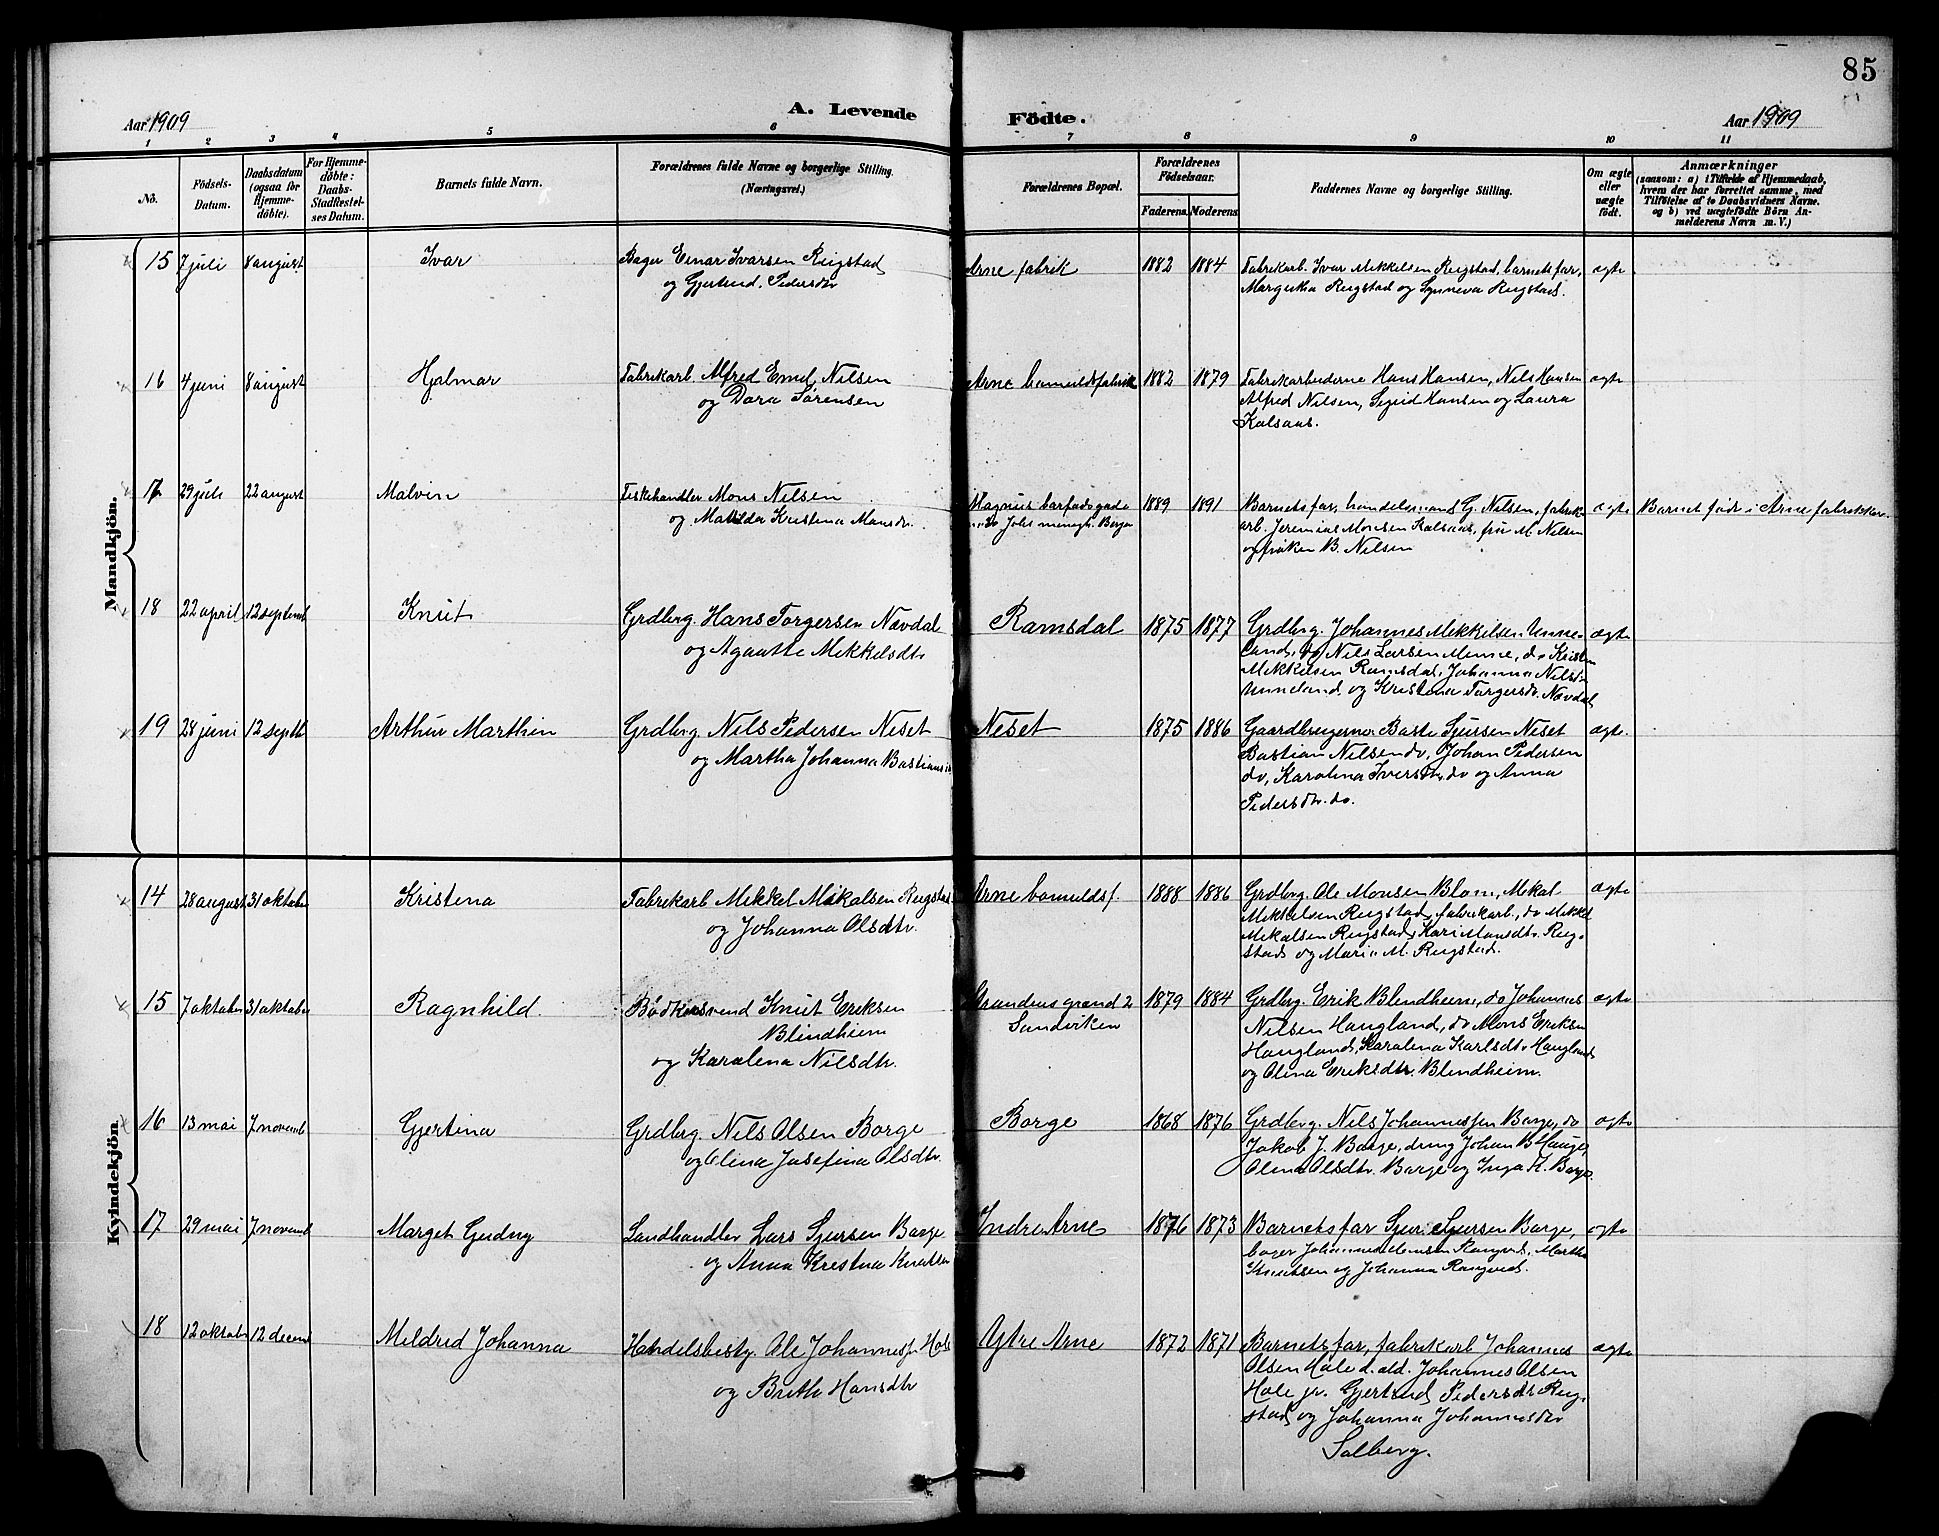 85
A. Levende Födte.
Aar 1909
Aar 1909
1 2 3 4 5 6 7 8 9 10 11
No.
Födsels-
Datum.
Daabsdatum
(ogsaa for
Hjemme-
döbte).
For Hjemme-
döbte:
Daabs-
Stadfestel-
ses Datum.
Barnets fulde Navn.
Forældrenes fulde Navne og borgerlige Stilling.
(Næringsvei.)
Forældrenes Bopæl.
Forældrenes
Födselsaar.
Faderens. Moderens.
Faddernes Navne og borgerlige Stilling.
Om ægte
eller
uægte
født.
Anmærkninger
(saasom: a) i Tilfælde af Hjemmedaab,
hvem der har forrettet samme, med
Tilföielse af to Daabsvidners Navne.
og b) ved uægtefödte Börn An-
melderens Navn m. V.)
Mandkjön.
15 7 juli 8 august Ivar
Bager Einar Ivarsen Rugstad
og Gjertrud Pedersdtr
Arne fabrik 1882 1884
Fabrikarb. Ivar Mikkelsen Rugstad, barnets far,
Margretha Rugstad og Synneva Rugstad.
ægte
16 4 juni 8 august Hjalmar
Fabrikarb. Alfred Emil Nilsen
og Dora Sørensen
Arne bomuldsfabrik 1882 1879
Fabrikarbeiderne Hans Hansen, Nils Hansen
Alfred Nilsen, Sigrid Hansen og Laura
Kalsaas.
ægte
17 29 juli 22 august Malvin
Fiskehandler Mons Nilsen
og Matilda Kristina Monsdtr.
Magnus barfods gade
Bergen
1889 1891
Barnets far, handelsmand G. Nilsen, fabrik-
arb. Jeremias Monsen Kalsaas, fru M. Nilsen
og frøken B. Nilsen
ægte Barnet født i Arne fabrikker.
18 22 april 12 septemb Knut
Grdbrg. Hans Torgersen Nævdal
og Agaatte Mikkelsdtr
Ramsdal 1875 1877
Grdbrg. Johannes Mikkelsen Unne-
land, do Nils Larsen Minne, do Kristen
Mikkelsen Ramsdal, Johanna Nilsdtr
Unneland og Kristina Torgersdtr. Nævdal
ægte
19 28 juni 12 septb Arthur Marthin
Grdbrg. Nils Pedersen Neset
og Martha Johanna Bastiansdtr
Neset 1875 1886
Gaardbrugerne Baste Sjursen Neset
Bastian Nilsen do, Johan Pedersen
do, Karolina Iversdtr. do og Anna
Pedersdtr. do.
ægte.
Kvindekjön.
14 28 august 31 oktober Kristina
Fabrikarb Mikkel Mikalsen Rugstad
og Johanna Olsdtr.
Arne bomuldsf. 1888 1886
Grdbrg. Ole Monsen Blom, Mikal
Mikkelsen Rugstad, fabrikarb., do Mikkel
Mikalsen Rugstad, Kari Monsdtr. Rug-
stad og Maria M. Rugstad.
ægte
15 7 oktober 31 oktober Ragnhild.
Bødkersvend Knut Eriksen
Blindheim
og Karolina Nilsdtr.
grænd 2
Sandviken
1879 1884
Grdbrg. Erik Blindheim, do Johannes
Nilsen Haugland, do Mons Eriksen
Haugland, Karolina Karlsdtr. Haugland
og Olina Eriksdtr. Blindheim.
ægte
16 13 mai 7 novemb Gjertina
Grdbrg. Nils Olsen Borge
og Olina Josefina Olsdtr.
Borge 1868 1876
Grdbrg. Nils Johannessen Borge, do
Jakob J. Borge, dreng Johan B Hauge,
Olina Olsdtr. Borge og Inga K. Borge
ægte
17 29 mai 7 novemb Marget Gudny
Landhandler Lars Sjursen Borge
og Anna Kristina Knutsen
Indre Arne 1876 1873
Barnets far, Sjur Sjursen Borge,
bager Johannes Monsen Romgved, Martha
Knutsen og Johanna Romgved.
ægte
18 12 oktober 12 decemb Mildred Johanna
Handelsbesty. Ole Johannessen Hole
og Brith Hansdtr
Ytre Arne 1872 1871
Barnets far, fabrikarb Johannes
Olsen Hole d. æld. Johannes Olsen
Hole jr. Gjertrud Pedersdtr Rug-
stad og Johanna Johannesdtr
Solberg.
ægte